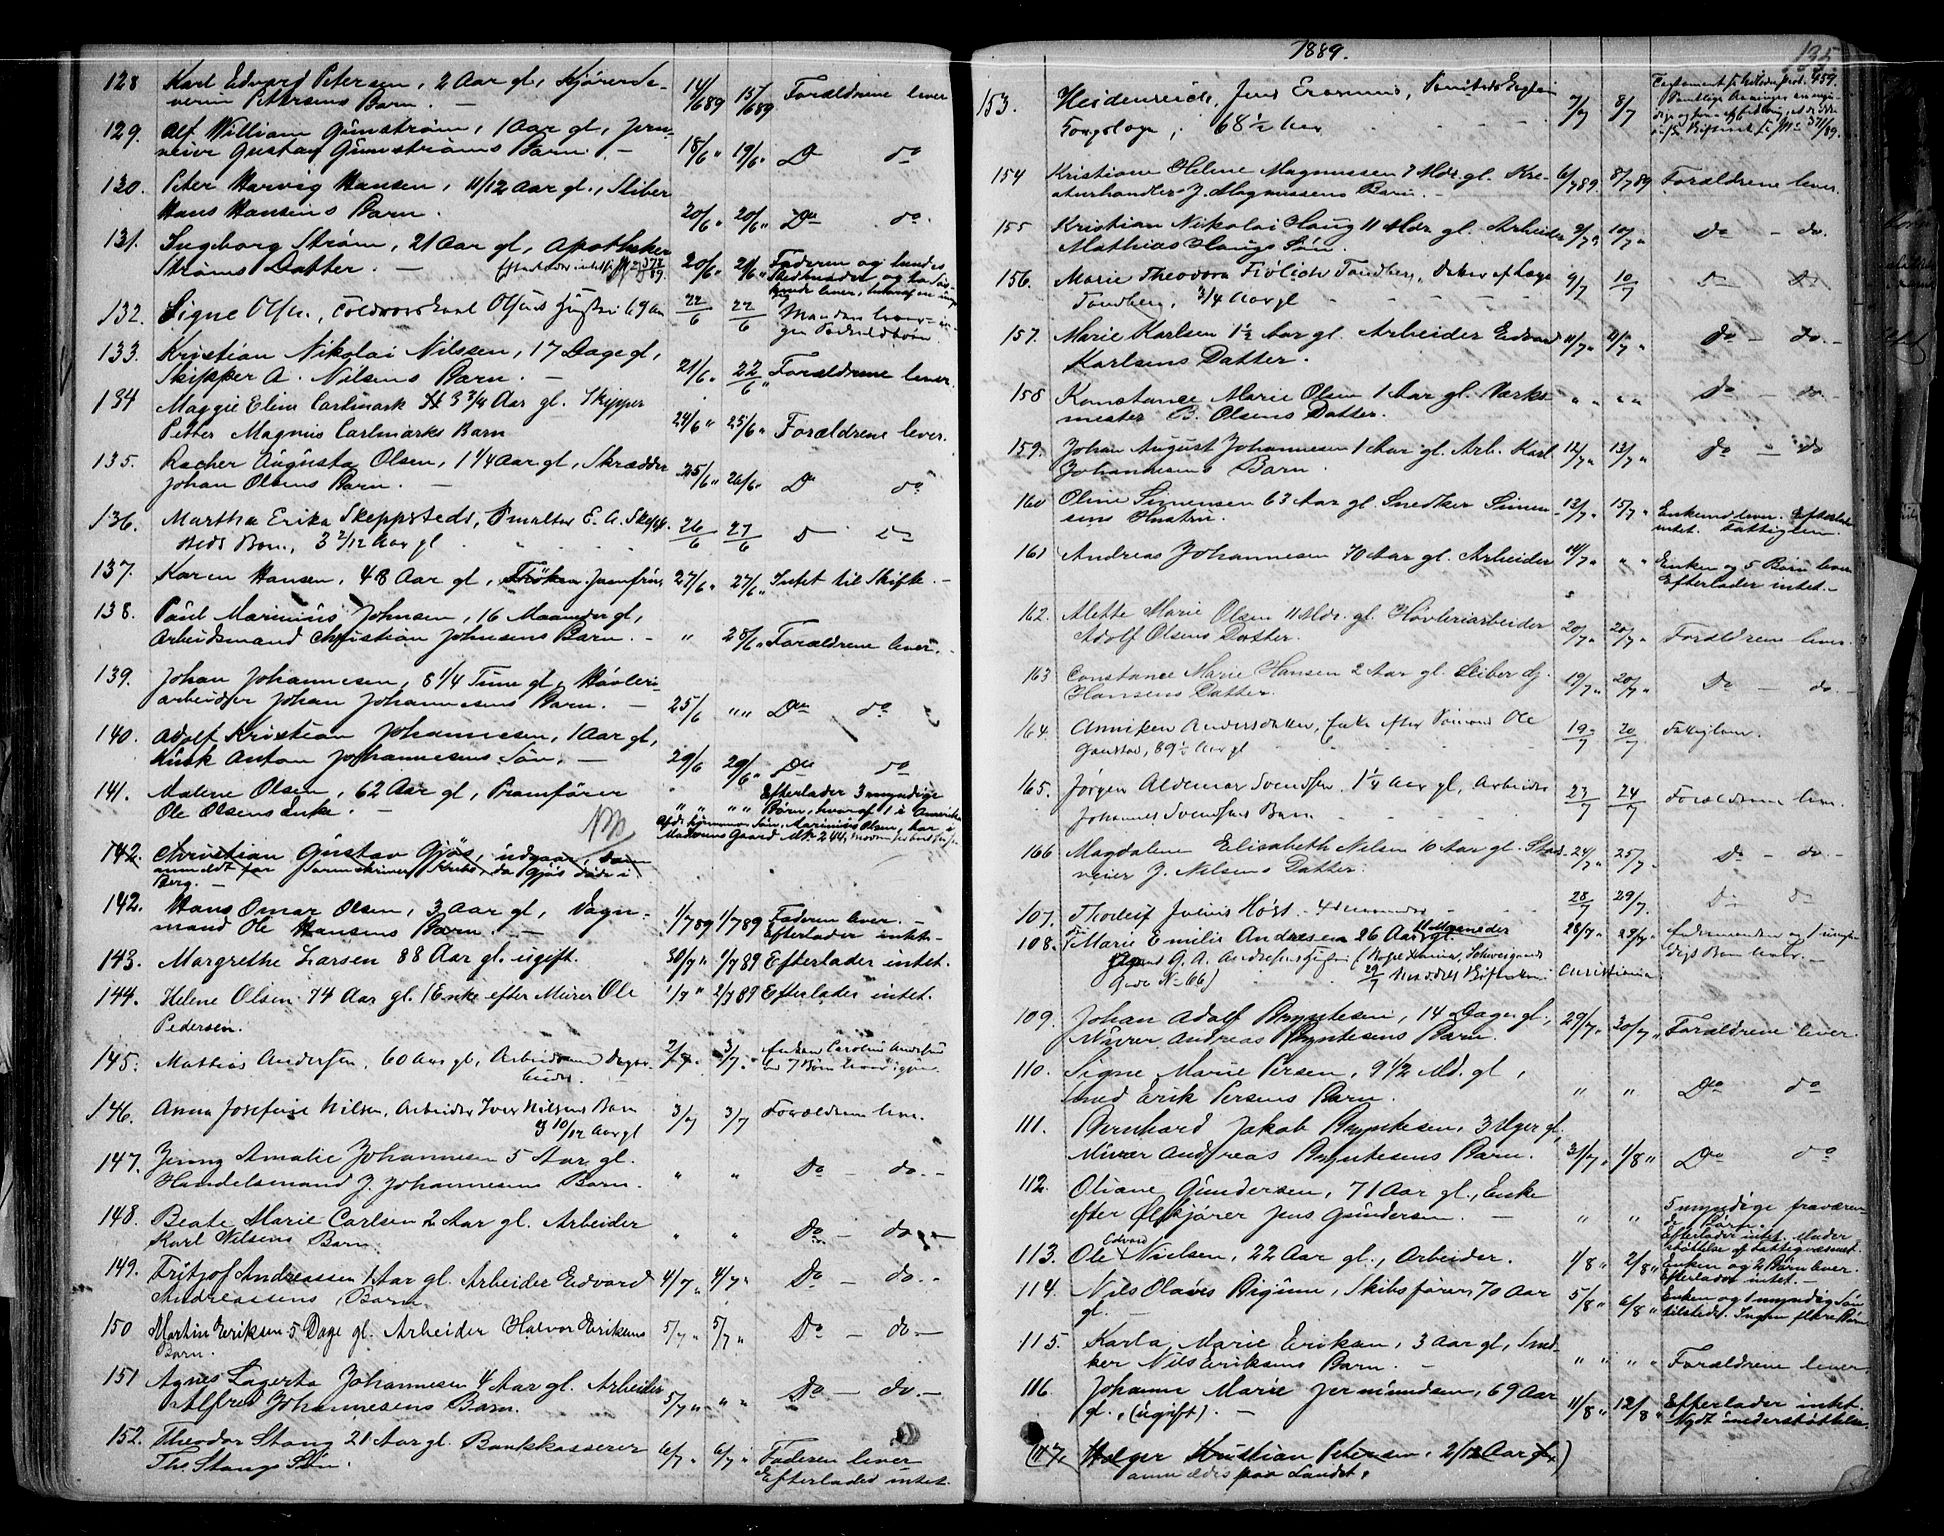 128 Karl Edvard Petersen, 2 Aar gl, Kjører Se- 14/6 89 15/6 89 Forældrene lever
verin Petersens Barn. —
129. Alf William Gunstrøm, 1 Aar gl, Jern-
Gustav Gunstrøms Barn. — 18/6 " 19/6 " Do do
130. Peter Harvig Hansen, 11/12 Aar gl., Sliber
Hans Hansens Barn. 20/6 " 20/6 " Do do.
131. Ingeborg Strøm, 21 Aar gl, Apotheker
Strøms Datter. — 20/6 " 21/6 " Faderen og hendes
132. Signe Olsen, Toldvors Olsens Hustru 69 Aar 22/6 22/6
133. Kristian Nikolai Nilssen, 17 Dage gl,
Skipper A. Nilsens Barn. — 21/6 " 22/6 " Forældrene lever.
134 Maggie Eline Carlmark 3 3/4 Aar gl. Skipper
Petter Magnus Carlmarks Barn 24/6 " 25/6 " Forældrene lever.
135. Racher Augusta Olsen, 1 1/4 Aar gl, Skrædder
Johan Olsens Barn. — 25/6 " 26/6 " Do do
136. Martha Erika Skeppsteds, E. A. Skepp-
steds Barn, 3 2/12 Aar gl 26/6 27/6 D D
137. Karen Hansen, 48 Aar gl, Frøken Jomfru, 27/6 " 27/6 " Intet til Skifte. —
138. Paul Marinius Johnsen, 16 Maaneder gl,
Arbeidsmand Christian Johnsens Barn. — " 28/6 " Forældrene lever. —
139. Johan Johannesen, 6 1/4 Time gl, Høvleri-
arbeider Johan Johannesens Barn. — 25/6 " " Do do
140. Adolf Kristian Johannesen, 1 Aar gl,
Kusk Anton Johannesens Søn. — 29/6 29/6 " Do do
141. Malene Olsen, 62 Aar gl, Pramfører Efterlader 3 myndige
Ole Olsens Enke. — " " " " Børn, hvoraf 1 i Amerika
NB
142. Christian Gustav Gjøs, udgaar, som
anmeldt for Sorenskriver Krebs, da Gjøs døde i
Berg. —
142. Hans Omar Olsen, 3 Aar gl, Vogn-
mand Ole Hansens Barn. — 1/7 89 1/7 89 Faderen lever. —
Efterlader intet. —
143. Margrethe Larsen 88 Aar gl. ugift. 30/7 " 1/7 89 Efterlader intet.
144. Helene Olsen 74 Aar gl. Enke efter Murer Ole 1/7 " 2/7 89 Efterlader intet.
Pedersen.
145. Mathias Andersen, 60 Aar gl, Arbeidsmand 2/7 3/7 Enken Caroline Andersen
146. Anna Josefine Nilsen, Arbeider Iver Nilsens Barn 3/7 3/7 Forældrene lever.
3 10/12 Aar gl
147. Jenny Amalie Johannesen 5 Aar gl.
Handelsmand J. Johannesens Barn. " " Do — do. —
148. Beate Marie Carlsen 2 Aar gl. Arbeider
Karl Nilsens Barn. " " Do — do. —
149. Fritjof Andreassen 1 Aar gl. Arbeider Edvard 4/7 " 4/7 " Do — do. —
Andreassens Barn.
150 Martin Eriksen 5 Dage gl. Arbeider Halvor Eriksens 5/7 " 5/7 " Do — do. —
Barn.
151 Agnes Lagerta Johannesen 4 Aar gl. Arbeider
Alfred Johannesens Barn. 5/7 " " " Do — do. —
152. Theodor Stang 21 Aar gl. Bankkasserer 6/7 " 6/7 " Faderen lever
Ths Stangs Søn. Efterlader intet.
1889.
135.
153. Heidenreich, Jens Erasmus, 7/7 8/7
68 1/2 Aar
154 Kristiane Helene Magnussen 7 Mdr. gl. Kre- 6/7 89. 8/7 89 Forældrene lever.
aturhandler J. Magnussens Barn.
155 Kristian Nikolai Haug 11 Mdr. gl. Arbeider 9/7 " 10/7 " Do — do.
Mathias Haugs Søn.
156. Marie Theodora Frølich Tandberg, Datter af Læge 9/7 10/7 D D
Tandberg, 3/4 Aar gl
157. Marie Karlsen 1 1/2 Aar gl. Arbeider Edvard 11/7 " 11/7 " Do — do. —
Karlsens Datter.
158 Konstance Marie Olsen 1 Aar gl. Værks- " " " " Do — do. —
mester B. Olsens Datter.
159. Johan August Johannesen 1 Aar gl. Arb. Karl 12/7 " 13/7 " Do — do
Johannesens Barn.
160 Oline Simensen 63 Aar gl. Snedker Simen- 13/7 " 15/7 " Enkemd lever. Efterlader
sens Hustru. intet. Fattiglem.
161 Andreas Johannesen 70 Aar gl. Arbeider 14/7 " " " Enken og 5 Børn lever
Efterlader intet. —
162. Alette Marie Olsen 11 Mdr. gl. Høvleriarbeider 20/7 " 20/7 " Forældrene lever.
Adolf Olsens Datter.
163 Constance Marie Hansen 2 Aar gl. Sliber Hj. 19/7 " 20/7 " Do — do. —
Hansens Datter.
164. Anniken Andersdatter, Enke efter Ole 19/7 20/7 Fattiglem.
89 1/2 Aar gl
165. Jørgen Aldemar Svendsen, 1 1/4 Aar gl, Arbeider 23/7 24/7 Forældrene lever.
Johannes Svendsens Barn
166 Magdalene Elisabeth Nilsen 10 Aar gl. 24/7 " 25/7 " Do — do. —
J. Nilsens Datter.
107. Thorleif Julius Høst 4 Maaneder 28/7 29/7 D D
108. Marie Emilie Andresen 26 Aar 11 Maaneder gl. 28/7 " 29/7 " Enkemanden og 1 umyn-
G. A. Andresens Hustru digt Barn lever. —
Gade No 66) 29/7 Christiania
109. Johan Adolf Bryntesen, 14 Dage gl., 29/7 " 30/7 " Forældrene lever.
Murer Andreas Bryntesens Barn.
110. Signe Marie Persen, 9 1/2 Md. gl,
Smed Erik Persens Barn. " " Do do
111. Bernhard Jakob Bryntesen, 3 Uger gl,
Murer Andreas Bryntesens Barn. 31/7 " 1/8 " Do do
112. Oliane Gundersen, 71 Aar gl., Enke
efter Ølkjører Jens Gundersen. — " " 5 myndige fraværen-
de Børn.
Efterlader intet. Under
støttelse af Fattigvæsenet.
113. Ole Edvard Nielsen, 22 Aar gl., Arbeider. 1/8 " 2/8 " Enken og 2 Børn lever.
Efterlader intet. —
114. Nils Olaves Bigum, Skibsfører, 70 Aar 5/8 " 6/8 " Enken og 1 myndig Søn
gl. — tilstede. Ingen flere Børn
115. Karla Marie Eriksen, 3 Aar gl, Sned-
ker Nils Eriksens Barn. — " " " " Forældrene lever
116. Johanne Marie Jermundsen, 69 Aar 11/8 " 12/8 " Efterlader intet.
gl., (ugift). — Nydt understøttelse
(117. Holger Kristian Petersen, 2/12 Aar gl)
anmeldes paa Landet.